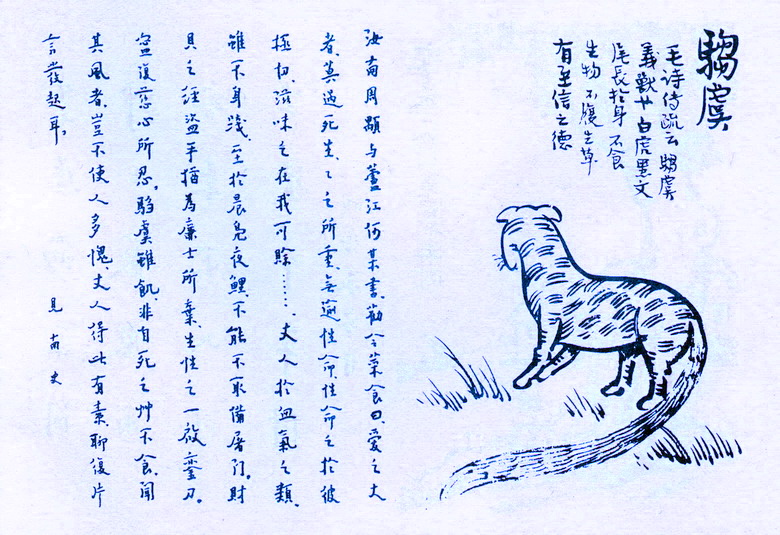 騶虞
毛诗传疏云 騶虞
義獸也 白虎黑文
尾長於身 不食
生物 不履生草
有至信之德
汝南周顒与蘆江何某書、勸令菜食曰、愛之大
者、莫過死生、々之所重、無逾性命、性命之於彼
極切、滋味之在我可賒……、丈人於血氣之類、
雖不身踐、至於晨凫夜鯉不能不取備屠门。財
貝之經盜手、猶為廉士所棄、生性之一啟鸞刀。
寧復慈心所忍。騶虞雖飢、非自死之艸不食、聞
其風者、豈不使人多愧、丈人得此有素、聊復片
言發起耳。
見南史